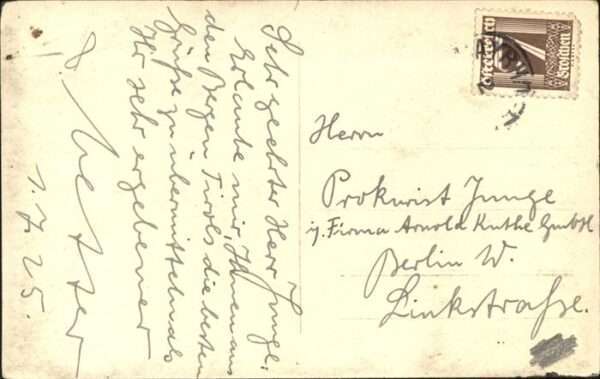 Sehr geehrter Herr Junge.
Erlaube mir, Ihnen aus
den Bergen Tirols die besten
Grüße zu übermitteln als
Ihr sehr ergebener
1. 7. 25.
Österreich
7
Groschen
Herrn
Prokurist Junge
i/. Firma Arnold Kuthe GmbH
Berlin W.
Linkstraße.